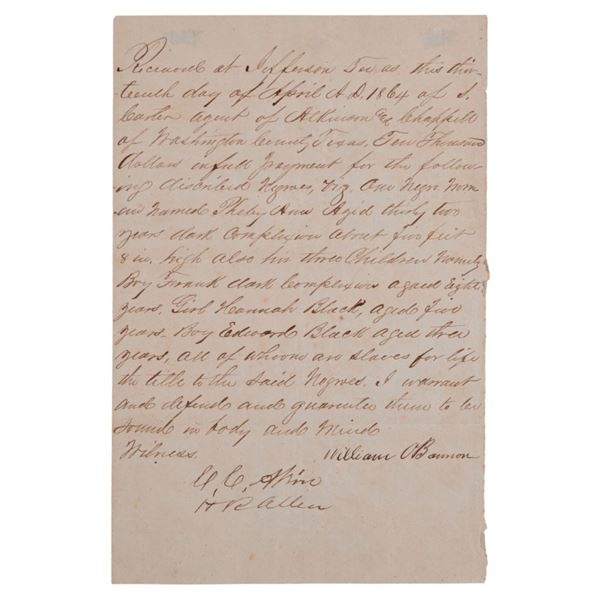 Received at Jefferson Texas this thir-
teenth day of April A.D. 1864 of S.
Carter agent of Atkinson & Chappell
of Washington County, Texas, Ten Thousand
dollars in full payment for the follow-
ing discribed Negroes, Viz. One Negro Wom
an Named Pheby Ann Agid thirty two
years dark Complexion about five feet
8 in. high also his three Children Namely
Boy Frank dark Complexion agaed Eight
years, Girl Hannah Black, aged five
years Boy Edward Black aged three
years, all of whoom are slaves for life
the title to the said Negroes. I warrant
and defend and guarantee them to be
sound in body and Mind
Witness. William O'Bannon
H B Allen